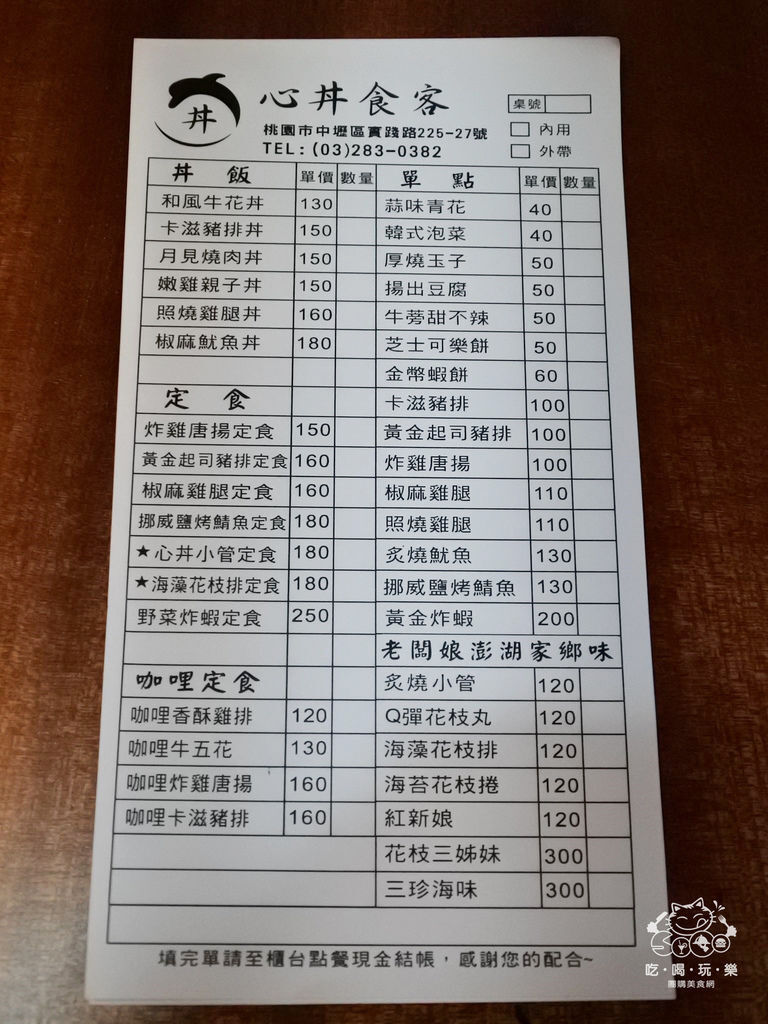 丼
心丼食客
桃園市中壢區實踐路225-27號
TEL:(03)283-0382
桌號
內用
外帶
丼 飯 單價 數量
和風牛花丼 130
卡滋豬排丼 150
月見燒肉丼 150
嫩雞親子丼 150
照燒雞腿丼 160
椒麻魷魚丼 180
定 食
炸雞唐揚定食 150
黃金起司豬排定食 160
椒麻雞腿定食 160
挪威鹽烤鯖魚定食 180
★心丼小管定食 180
★海藻花枝排定食 180
野菜炸蝦定食 250
咖哩定食
咖哩香酥雞排 120
咖哩牛五花 130
咖哩炸雞唐揚 160
咖哩卡滋豬排 160
單 點 單價 數量
蒜味青花 40
韓式泡菜 40
厚燒玉子 50
揚出豆腐 50
牛蒡甜不辣 50
芝士可樂餅 50
金幣蝦餅 60
卡滋豬排 100
黃金起司豬排 100
炸雞唐揚 100
椒麻雞腿 110
照燒雞腿 110
炙燒魷魚 130
挪威鹽烤鯖魚 130
黃金炸蝦 200
老闆娘澎湖家鄉味
炙燒小管 120
Q彈花枝丸 120
海藻花枝排 120
海苔花枝捲 120
紅新娘 120
花枝三姊妹 300
三珍海味 300
填完單請至櫃台點餐現金結帳，感謝您的配合~
吃·喝·玩·樂
團購美食網